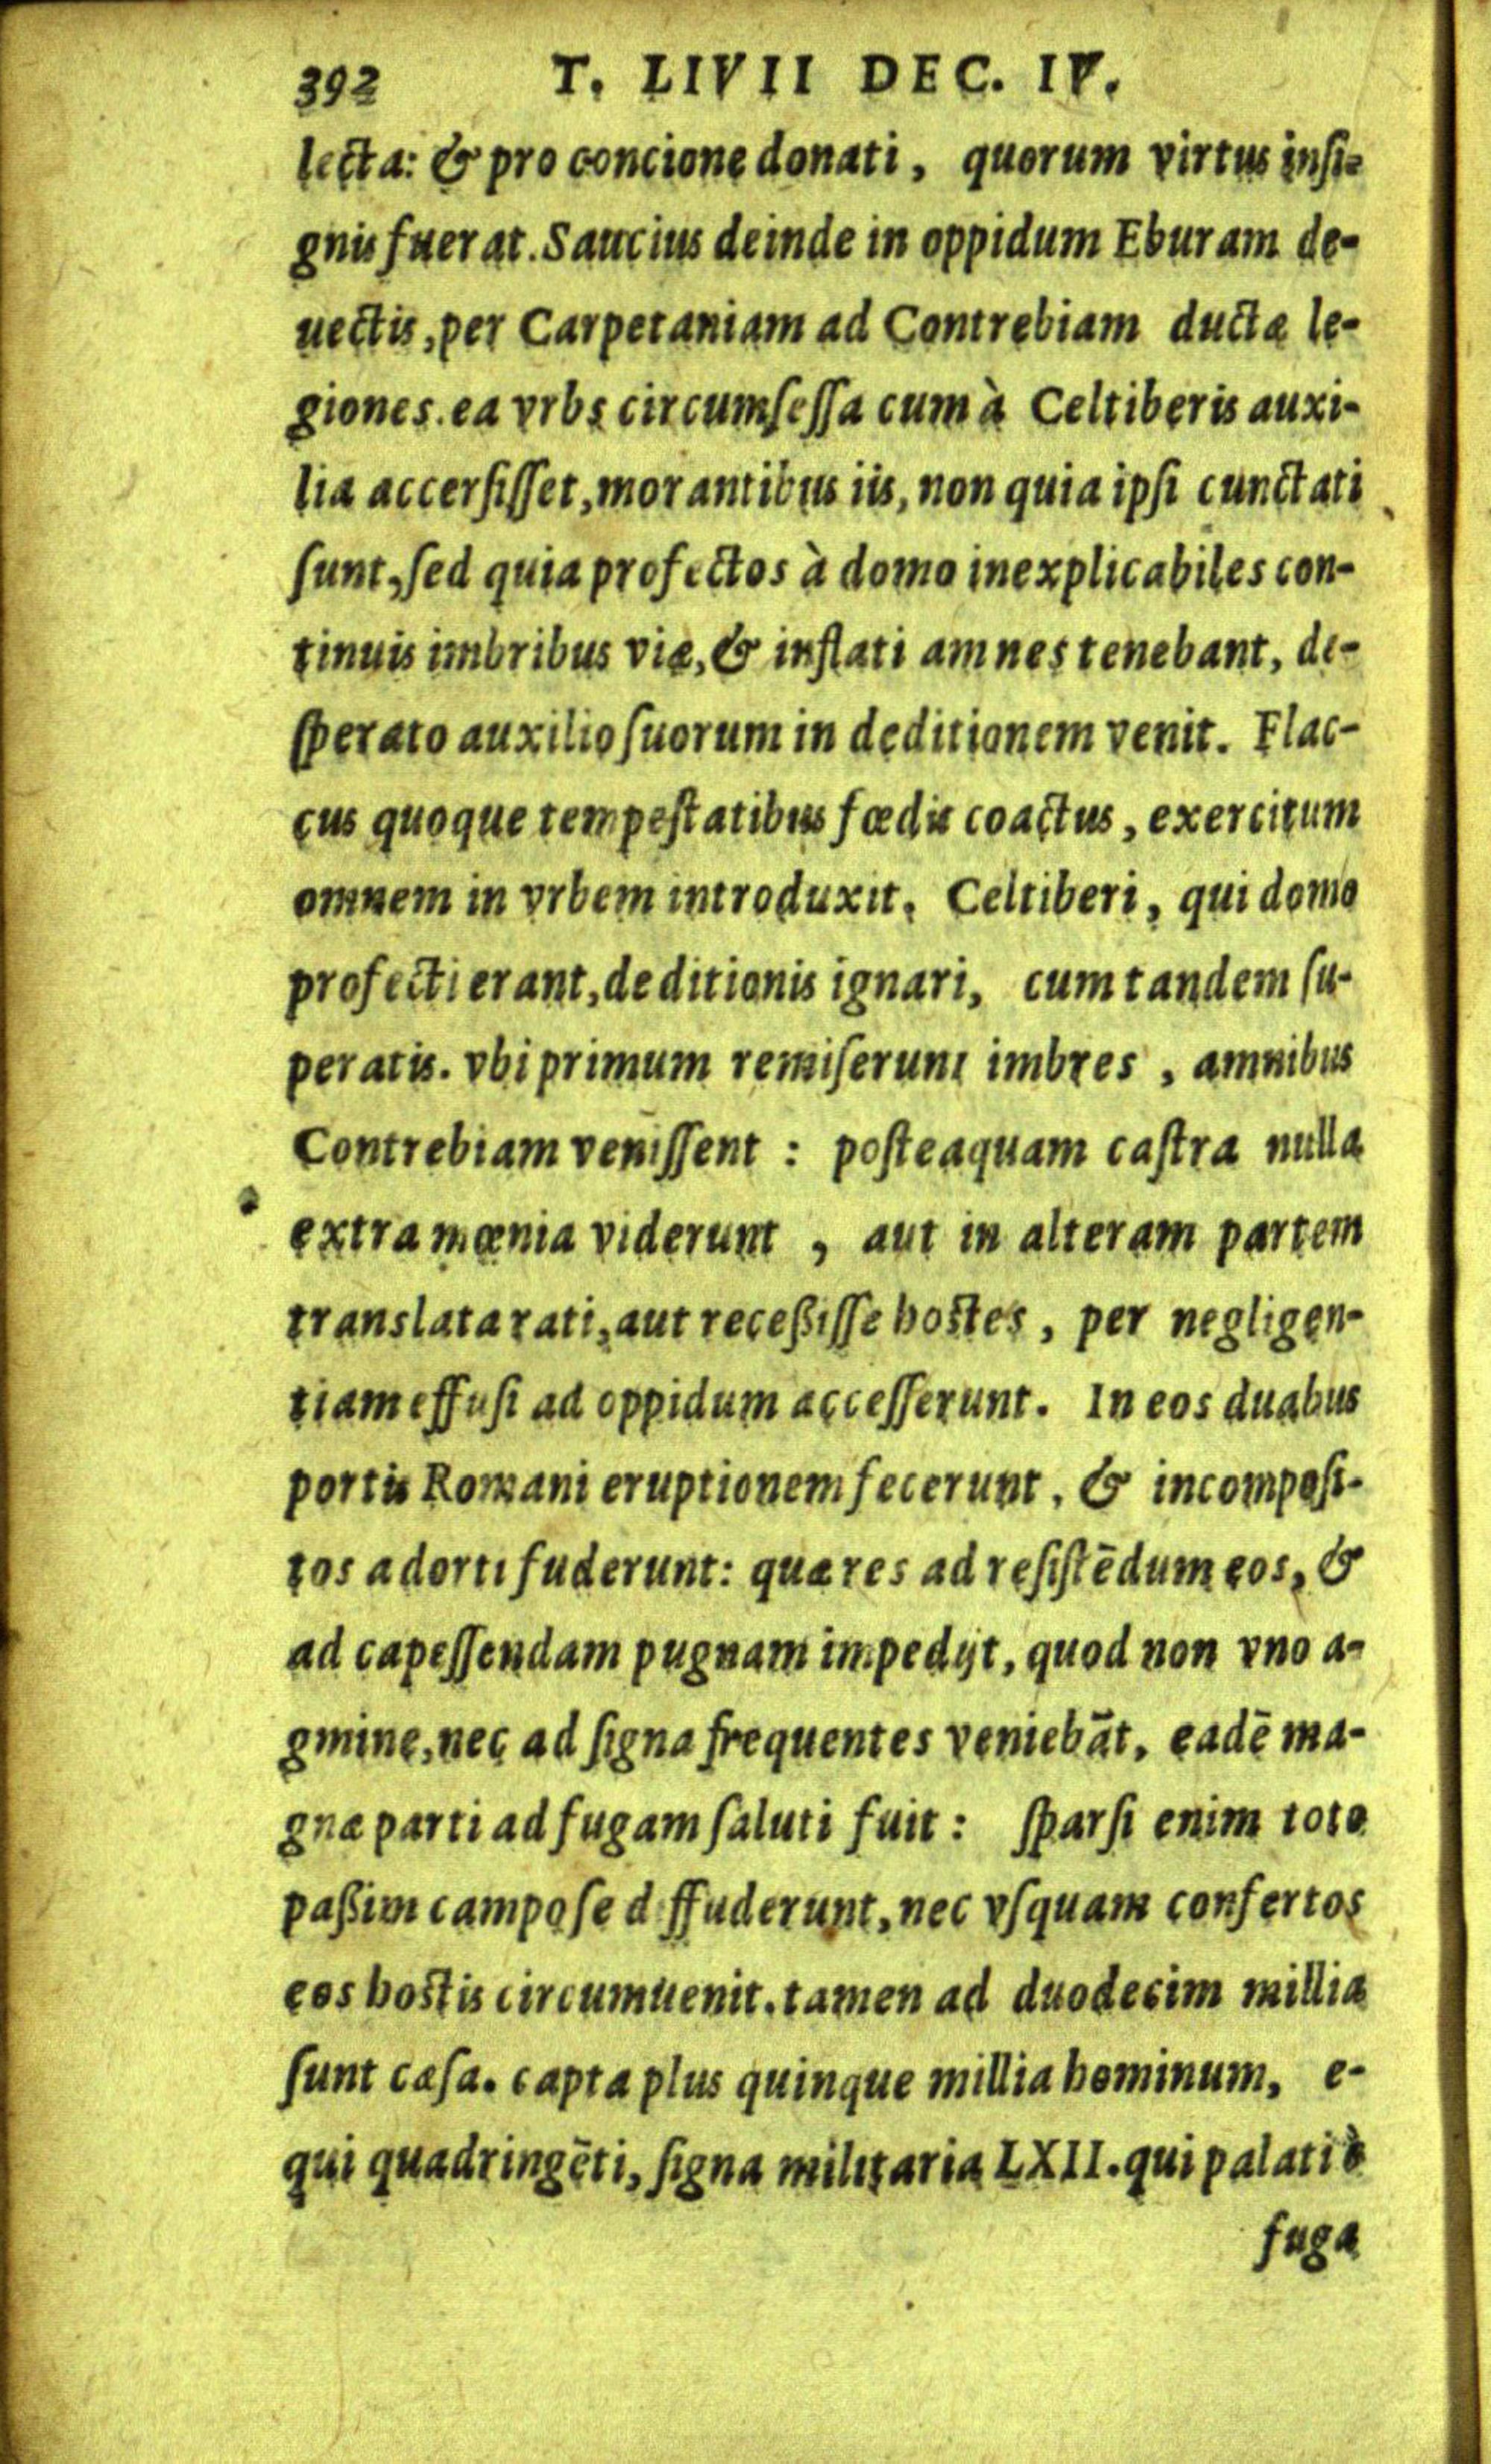 392 T. LIVII DEC. IV.
lecta: & pro concione donati, quorum virtus insi-
gnis fuerat. Saucius deinde in oppidum Eburam de-
uectis, per Carpetaniam ad Contrebiam ductæ le-
giones. ea vrbs circumsessa cum à Celtiberis auxi-
lia accersisset, morantibus iis, non quia ipsi cunctati
sunt, sed quia profectos à domo inexplicabiles con-
tinuis imbribus viæ, & inflati amnes tenebant, de-
sperato auxilio suorum in deditionem venit. Flac-
cus quoque tempestatibus fœdis coactus, exercitum
omnem in vrbem introduxit. Celtiberi, qui domo
profecti erant, deditionis ignari, cum tandem su-
peratis. vbi primum remiserunt imbres, amnibus
Contrebiam venissent: posteaquam castra nulla
extra mœnia viderunt, aut in alteram partem
translata rati, aut recessisse hostes, per negligen-
tiam effusi ad oppidum accesserunt. In eos duabus
portis Romani eruptionem fecerunt, & incomposi-
tos adorti fuderunt: quæ res ad resistēdum eos, &
ad capessendam pugnam impedijt, quod non vno a-
gmine, nec ad signa frequentes veniebāt, eadē ma-
gnæ parti ad fugam saluti fuit: sparsi enim toto
passim campo se diffuderunt, nec vsquam confertos
eos hostis circumuenit. tamen ad duodecim millia
sunt cæsa. capta plus quinque millia hominum, e-
qui quadringēti, signa militaria LXII. qui palati è
fuga